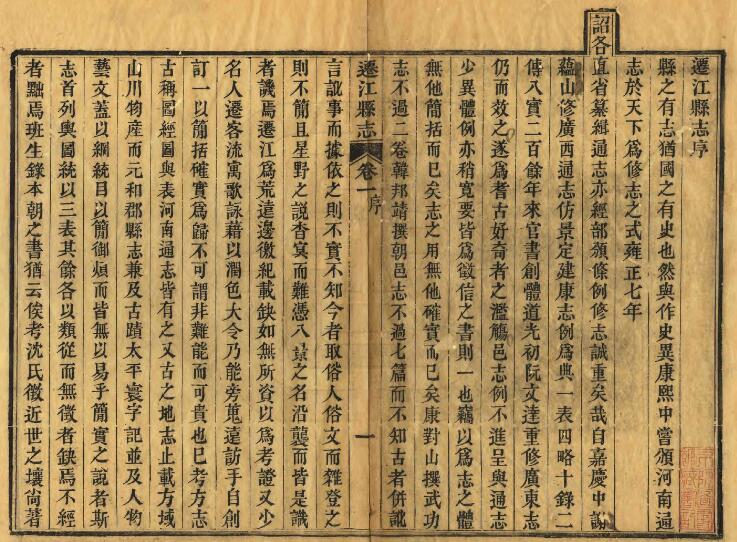 遷江縣志序
縣之有志猶國之有史也然與作史異康熙中嘗頒河南通
志於天下爲修志之式雍正七年
詔各直省纂緝通志亦經部頒條例修志誠重矣哉自嘉慶中謝
蘊山修廣西通志仿景定建康志例爲典一表四略十錄二
傳八實二百餘年來官書創體道光初阮文達重修廣東志
仍而效之遂爲耆古好奇者之濫觴邑志例不進呈與通志
少異體例亦稍寬要皆爲徵信之書則一也竊以爲志之體
無他簡括而已矣志之用無他確實而已矣康對山撰武功
志不過二卷韓邦靖撰朝邑志不過七篇而不知古者併訛
遷江縣志
卷一
序
一
言訛事而據依之則不實不知今者取俗人俗文而雜登之
則不簡且星野之說杳冥而難憑八景之名沿襲而皆是識
者譏焉遷江爲荒遠邊徼紀載缺如無所資以爲考證又少
名人遷客流寓歌詠藉以潤色大令乃能旁蒐遠訪手自創
訂一以簡括確實爲歸不可謂非難能而可貴也已考方志
古稱圖經圖與表河南通志皆有之又古之地志止載方域
山川物產而元和郡縣志兼及古蹟太平寰宇記並及人物
藝文蓋以綱統目以簡御煩而皆無以易乎簡實之說者斯
志首列輿圖統以三表其餘各以類從而無徵者缺焉不經
者黜焉班生錄本朝之書猶云俟考沈氏徵近世之壤尙著